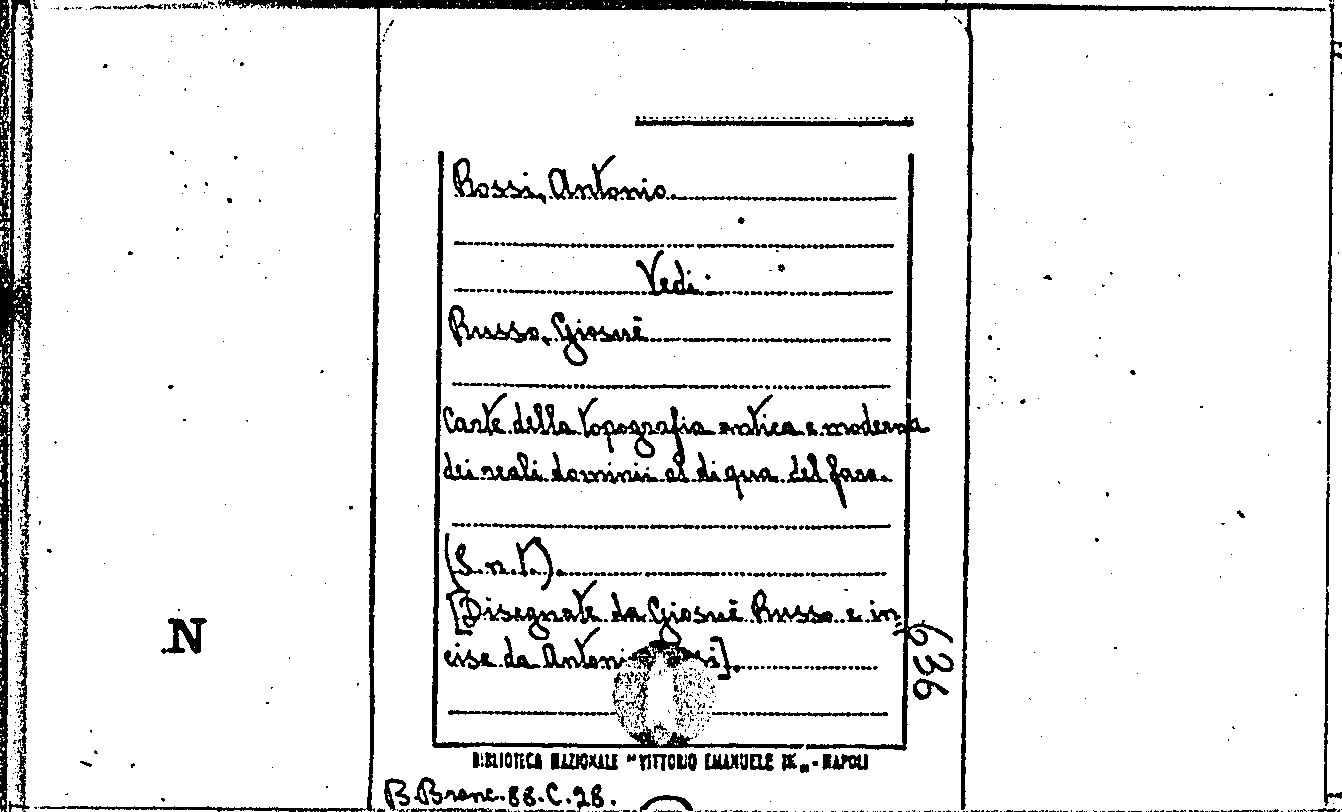 Rossi, Antonio.
Vedi:
Russo, Giosuè
Carte della topografia antica e moderna
dei reali dominii al di qua del faro.
(S.n.t.).
[Disegnate da Giosuè Russo e in-
cise da Antonio
636
N
BIBLIOTECA NAZIONALE "VITTORIO EMANUELE III" - NAPOLI
B. Branc. 88. C. 28.